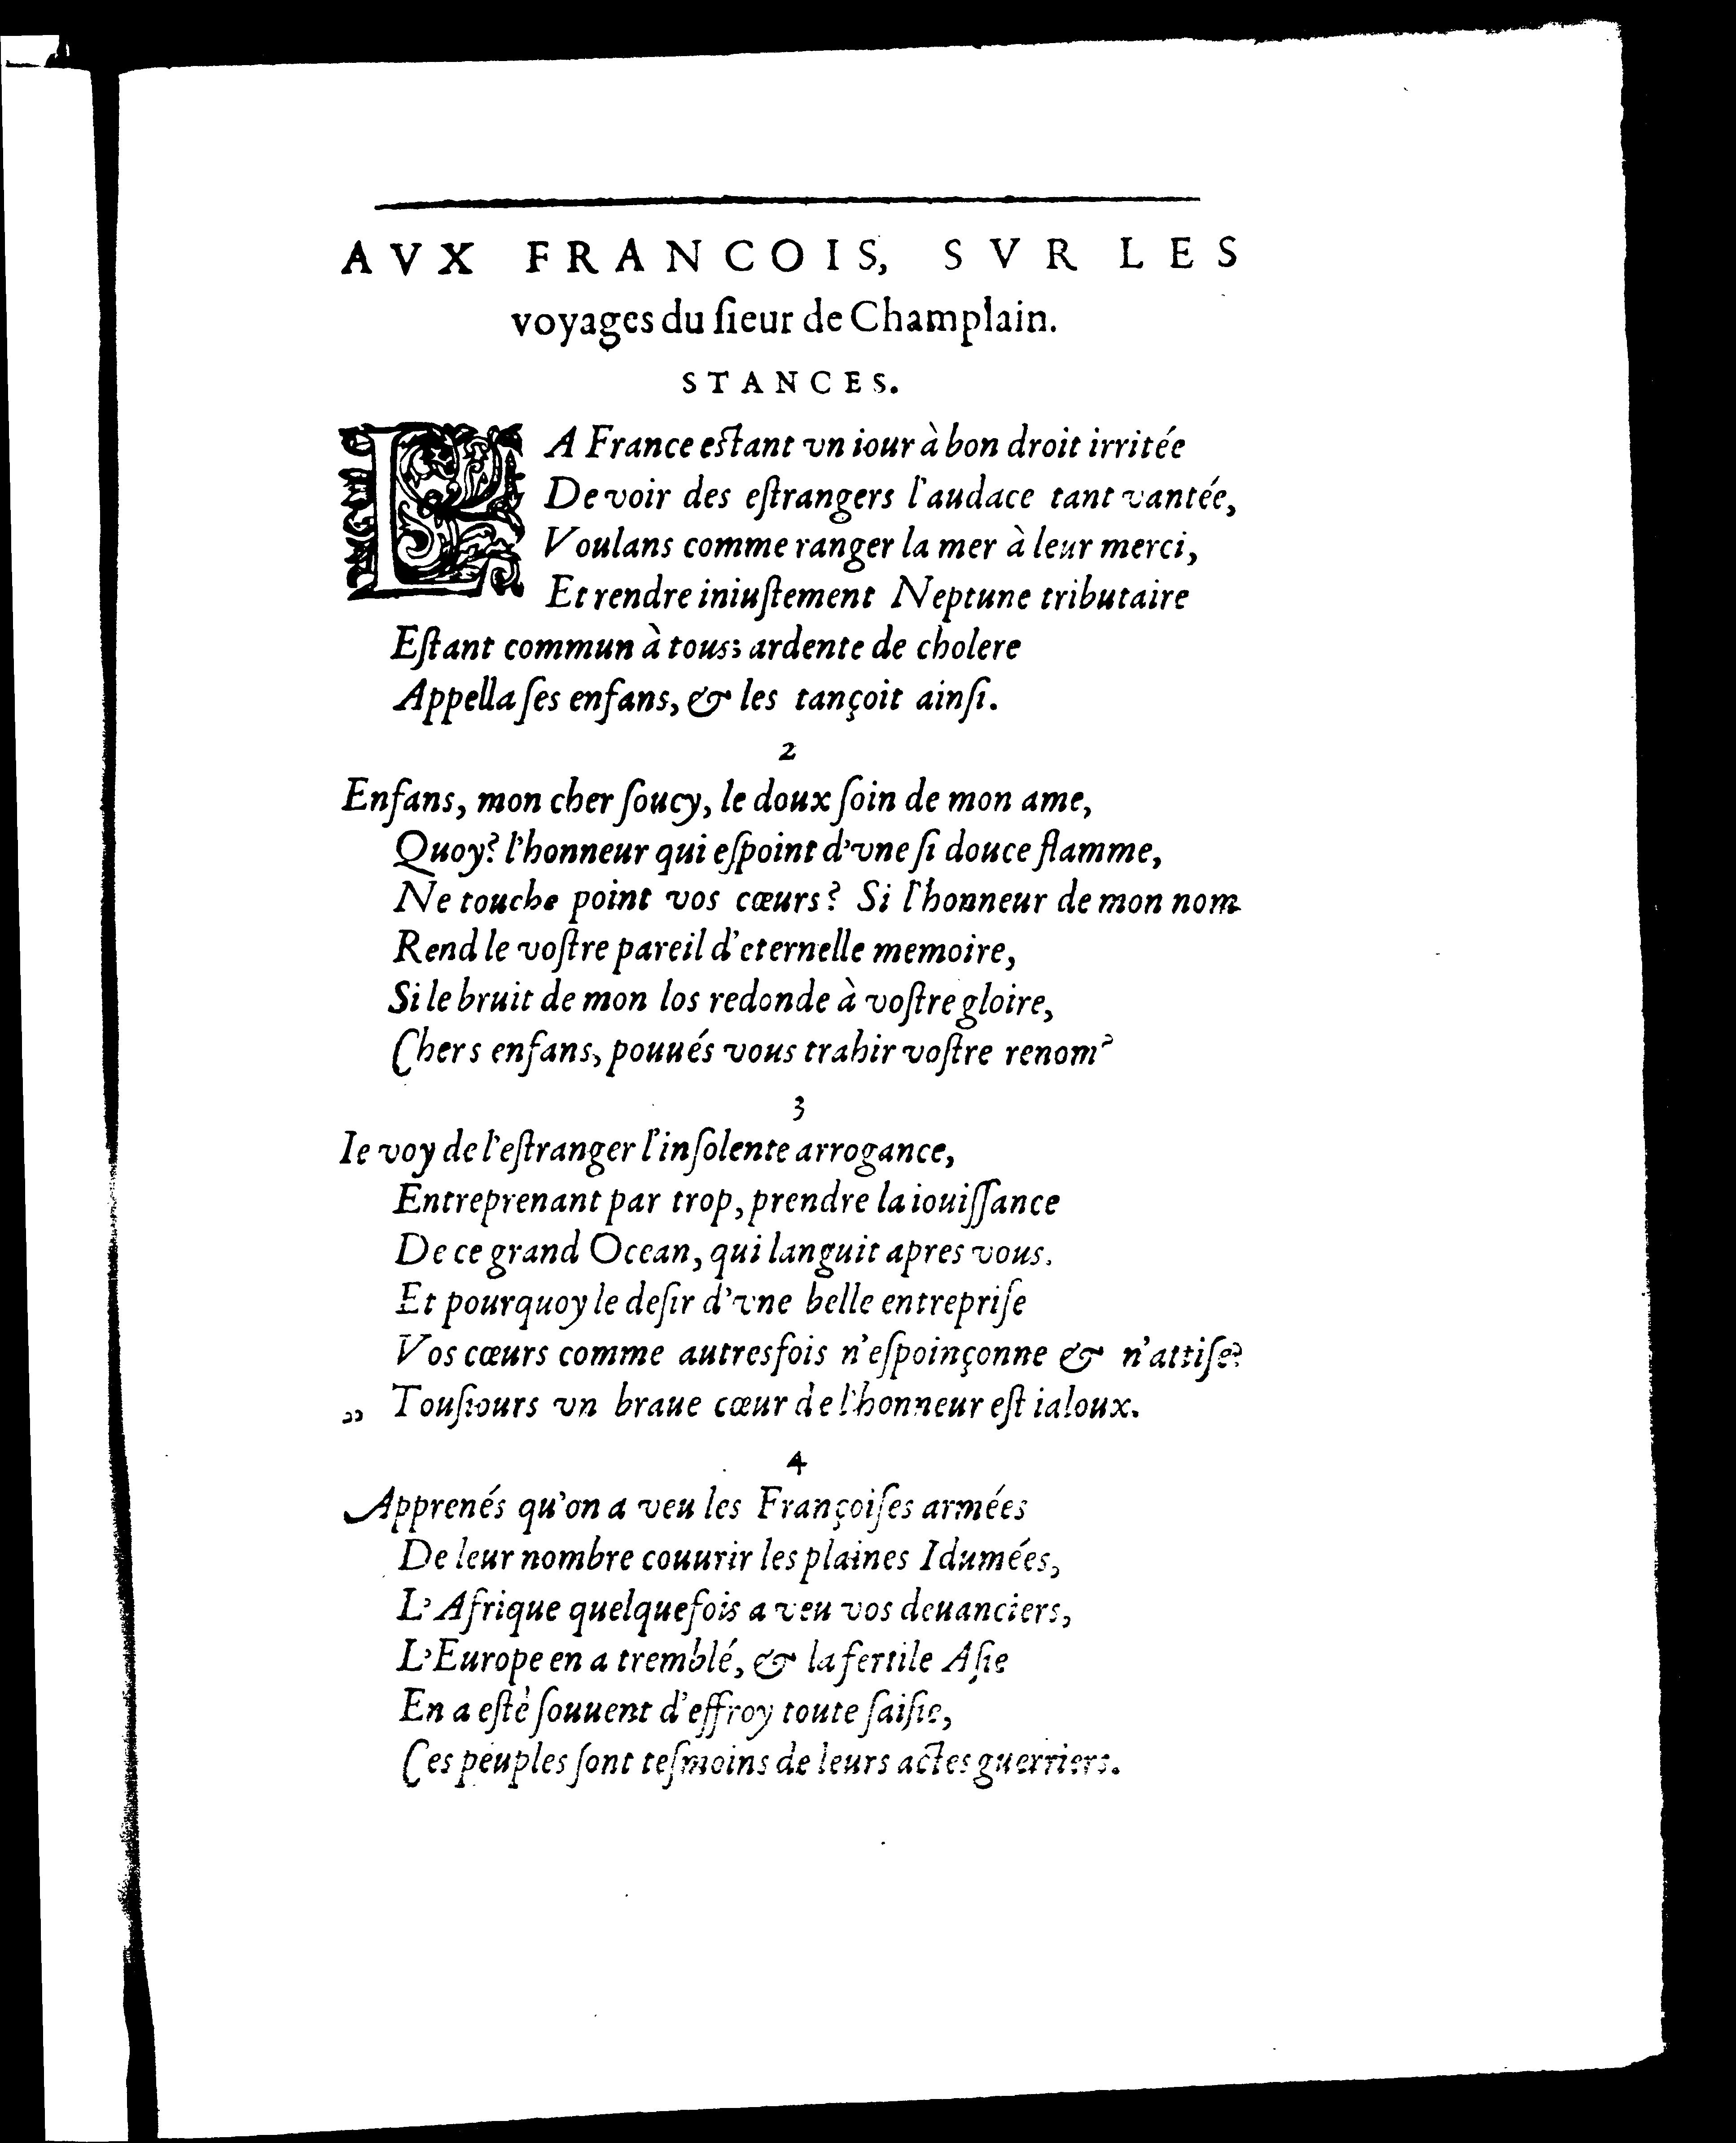 AVX FRANCOIS, SVR LES
voyages du ſieur de Champlain.
STANCES.
LA France eſtant vn iour à bon droit irritée
De voir des eſtrangers l'audace tant vantée,
Voulans comme ranger la mer à leur merci,
Et rendre iniuſtement Neptune tributaire
Eſtant commun à tous; ardente de cholere
Appella ſes enfans, & les tançoit ainſi.
2
Enfans, mon cher ſoucy, le doux ſoin de mon ame,
Quoy? l'honneur qui eſpoint d'vne ſi douce flamme,
Ne touche point vos cœurs? Si l'honneur de mon nom
Rend le voſtre pareil d'eternelle memoire,
Si le bruit de mon los redonde à voſtre gloire,
Chers enfans, pouués vous trahir voſtre renom?
3
Ie voy de l'eſtranger l'inſolente arrogance,
Entreprenant par trop, prendre la iouiſſance
De ce grand Ocean, qui languit apres vous.
Et pourquoy le deſir d'vne belle entrepriſe
Vos cœurs comme autresfois n'eſpoinçonne & n'attiſe?
„ Touſiours vn braue cœur de l'honneur eſt ialoux.
4
Apprenés qu'on a veu les Françoiſes armées
De leur nombre couurir les plaines Idumées,
L'Afrique quelquefois a veu vos deuanciers,
L'Europe en a tremblé, & la fertile Aſie
En a eſtè ſouuent d'effroy toute ſaiſie,
Ces peuples ſont teſmoins de leurs actes guerriers.